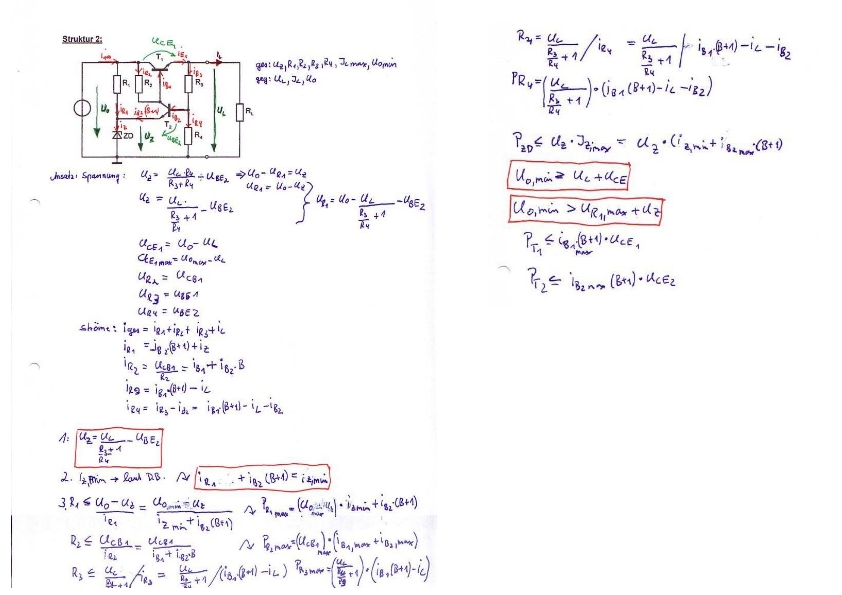 Struktur 2:
U_CE1
i_ges T_1 i_E1 I_L
ges: U_Z, R_1, R_2, R_3, R_4, I_Zmax, U_0min
geg: U_L, I_L, U_0
R_1 i_R2 R_2 i_B1 i_R3 R_3
U_0 i_R1 i_B2(B+1) i_B2 U_L R_L
i_Z ZD U_Z T_2 U_BE2 i_R4 R_4
Ansatz: Spannung: U_Z = U_L·R_4/(R_3+R_4) ÷ U_BE2 ⇒ U_0 - U_R1 = U_Z
U_R1 = U_0 - U_Z
U_Z = U_L/(R_3/R_4 + 1) - U_BE2 } U_R1 = U_0 - U_L/(R_3/R_4 + 1) - U_BE2
U_CE1 = U_0 - U_L
U_CE1max = U_0max - U_L
U_R2 = U_CB1
U_R3 = U_BE1
U_R4 = U_BE2
Ströme: i_ges = i_R1 + i_R2 + i_R3 + i_L
i_R1 = i_B2·(B+1) + i_Z
i_R2 = U_CB1/R_2 = i_B1 + i_B2·B
i_R3 = i_B1·(B+1) - i_L
i_R4 = i_R3 - i_B2 = i_B1·(B+1) - i_L - i_B2
1: U_Z = U_L/(R_3/R_4 + 1) - U_BE2
2. I_Z,min → laut D.B. ↷ i_R1 + i_B2(B+1) = i_Z,min
3. R_1 ≤ (U_0 - U_Z)/i_R1 = (U_0,min - U_Z)/(i_Zmin + i_B2(B+1)) ↷ P_R1max = (U_0max - U_Z)·i_Zmin + i_B2·(B+1)
R_2 ≤ U_CB1/i_R2 = U_CB1/(i_B1 + i_B2·B) ↷ P_R2max = (U_CB1max)·(i_B1,max + i_B2,max)
R_3 ≤ U_L/(R_3/R_4 + 1) / i_R3 = U_L/(R_3/R_4 + 1) / (i_B1·(B+1) - i_L) P_R3max = (U_L/(R_4/R_3 + 1))·(i_B1(B+1) - i_L)
R_4 = U_L/(R_3/R_4 + 1) / i_R4 = U_L/(R_3/R_4 + 1) / i_B1·(B+1) - i_L - i_B2
P_R4 = (U_L/(R_3/R_4 + 1))·(i_B1(B+1) - i_L - i_B2)
P_ZD ≤ U_Z·I_Z,max = U_Z·(i_Z,min + i_B2max·(B+1)
U_0,min ≥ U_L + U_CE
U_0,min > U_R1,max + U_Z
P_T1 ≤ i_B1max·(B+1)·U_CE1
P_T2 ≤ i_B2max(B+1)·U_CE2